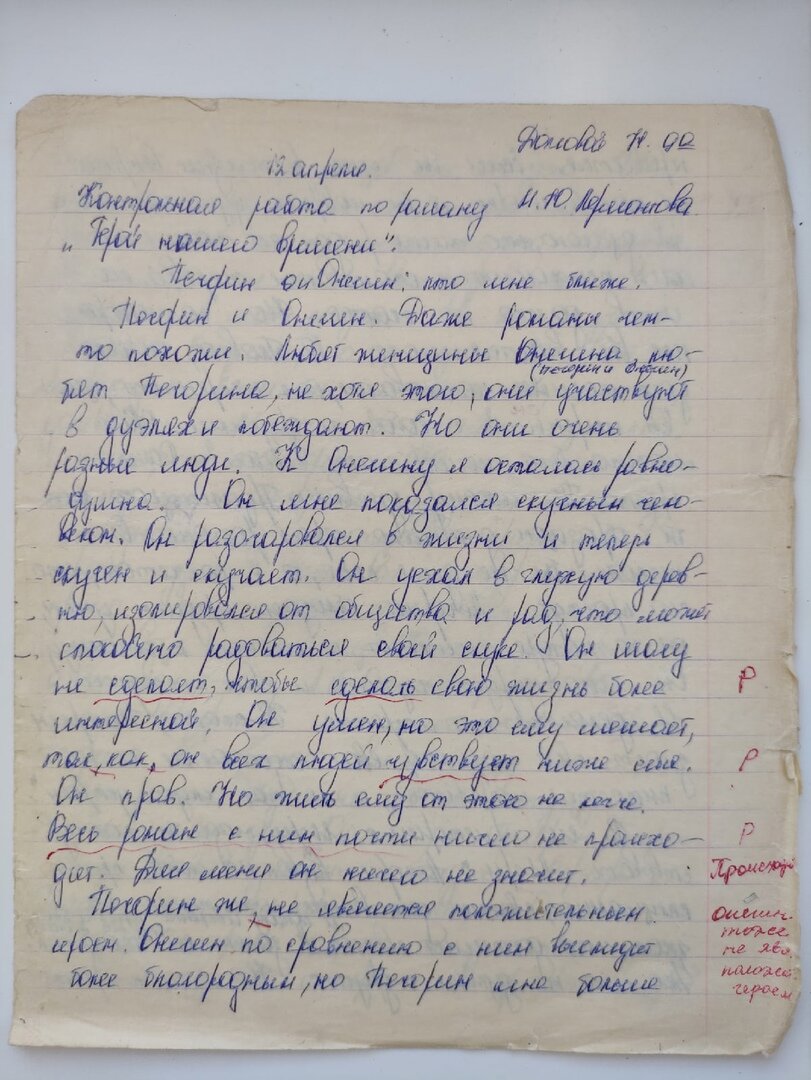 9а
12 апреля.
Контрольная работа по роману М.Ю. Лермонтова
„Герой нашего времени".
Печорин и Онегин: кто мне ближе.
Печорин и Онегин. Даже романы чем-
то похожи. Любят женщины Онегина, лю-
(Печорин и Онегин)
бят Печорина, не хотя этого, они участвуют
в дуэлях и побеждают. Но они очень
разные люди. К Онегину я осталась равно-
душна. Он мне показался скучным чело-
веком. Он разочаровался в жизни и теперь
скучен и скучает. Он уехал в глухую дерев-
ню, изолировался от общества и рад, что может
спокойно радоваться своей скуке. Он шагу
не сделает, чтобы сделать свою жизнь более
Р
интересной. Он умен, но это ему мешает,
так, как, он всех людей чувствует ниже себя.
Р
Он прав. Но жить ему от этого не легче.
Весь роман с ним почти ничего не происхо-
Р
дит. Для меня он ничего не значит.
Происходит
Печорин же, не является положительным
героем. Онегин по сравнению с ним выглядит
более благородным, но Печорин мне больше
онегин
тоже
не явл.
полож.
героем